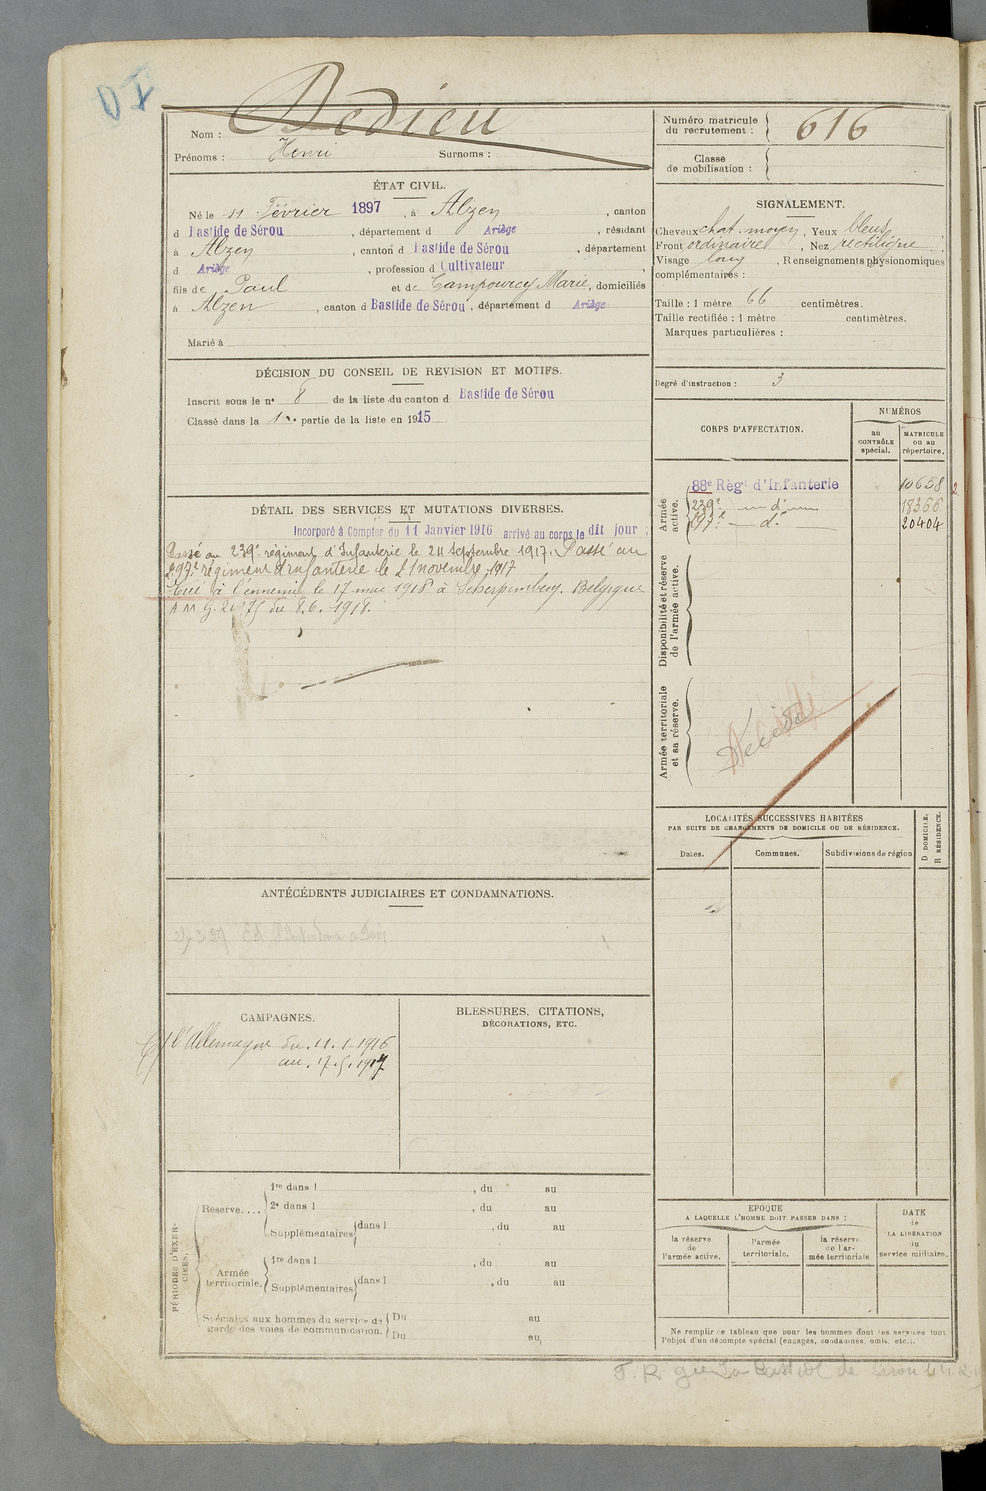 DI
Nom : Dedieu
Prénoms : Henri Surnoms :
Numéro matricule du recrutement : 616
Classe de mobilisation :
ÉTAT CIVIL.
Né le 11 Février 1897, à Alzen, canton
d Bastide de Sérou, département d Ariège, résidant
à Alzen, canton d Bastide de Sérou, département
d Ariège, profession d Cultivateur,
fils de Paul et de Campourcy Marie, domiciliés
à Alzen, canton d Bastide de Sérou, département d Ariège
Marié à
SIGNALEMENT.
Cheveux chat. moyen, Yeux bleus,
Front ordinaire, Nez rectiligne
Visage long, Renseignements physionomiques
complémentaires :
Taille : 1 mètre 66 centimètres.
Taille rectifiée : 1 mètre centimètres.
Marques particulières :
Degré d'instruction : 3
DÉCISION DU CONSEIL DE REVISION ET MOTIFS.
Inscrit sous le n° 8 de la liste du canton d Bastide de Sérou
Classé dans la 1re partie de la liste en 1915
CORPS D'AFFECTATION.
NUMÉROS
au CONTRÔLE spécial.
MATRICULE ou au répertoire.
Armée active.
88e Régt d'Infanterie 10658
239e d° 18366
297e d° 20404
Disponibilité et réserve de l'armée active.
Armée territoriale et sa réserve.
Décédé
DÉTAIL DES SERVICES ET MUTATIONS DIVERSES.
Incorporé à Compter du 11 Janvier 1916 arrivé au corps le dit jour
Passé au 239e régiment d'Infanterie le 24 Septembre 1917. Passé au
297e régiment d'infanterie le 21 novembre 1917
Tué à l'ennemi le 17 mai 1918 à Scherpenberg. Belgique
du 8.6.1918.
LOCALITÉS SUCCESSIVES HABITÉES
PAR SUITE DE CHANGEMENTS DE DOMICILE OU DE RÉSIDENCE.
Dates. Communes. Subdivisions de région
D DOMICILE.
R RÉSIDENCE.
ANTÉCÉDENTS JUDICIAIRES ET CONDAMNATIONS.
CAMPAGNES.
l'Allemagne du 11.1.1916
au 17.5.1917
BLESSURES, CITATIONS,
DÉCORATIONS, ETC.
PÉRIODES D'EXERCICES.
Réserve.... 1re dans l , du au
2e dans l , du au
Supplémentaires dans l , du au
Armée territoriale. 1re dans l , du au
Supplémentaires dans l , du au
Spéciales aux hommes du service de garde des voies de communication. Du au
Du au
EPOQUE
A LAQUELLE L'HOMME DOIT PASSER DANS :
la réserve de l'armée active.
l'armée territoriale.
la réserve de l'armée territoriale.
DATE de LA LIBÉRATION du service militaire.
Ne remplir ce tableau que pour les hommes dont les services font
l'objet d'un décompte spécial (engagés, condamnés, omis, etc.).
La Bastide de Serou